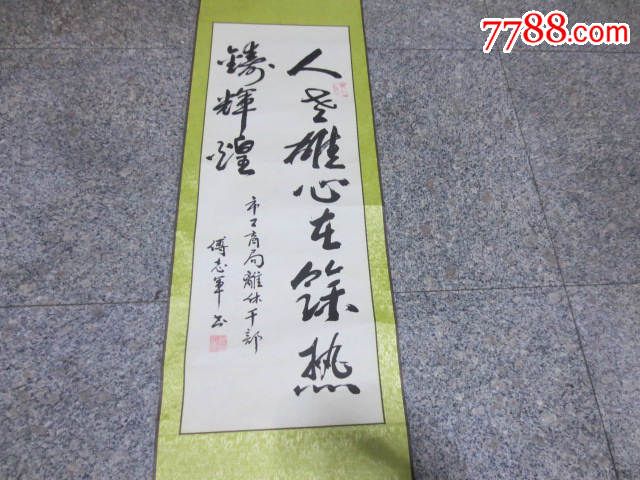 7788.com
人老雄心在餘热
鑄輝煌
市工商局離休干部
傅志軍书